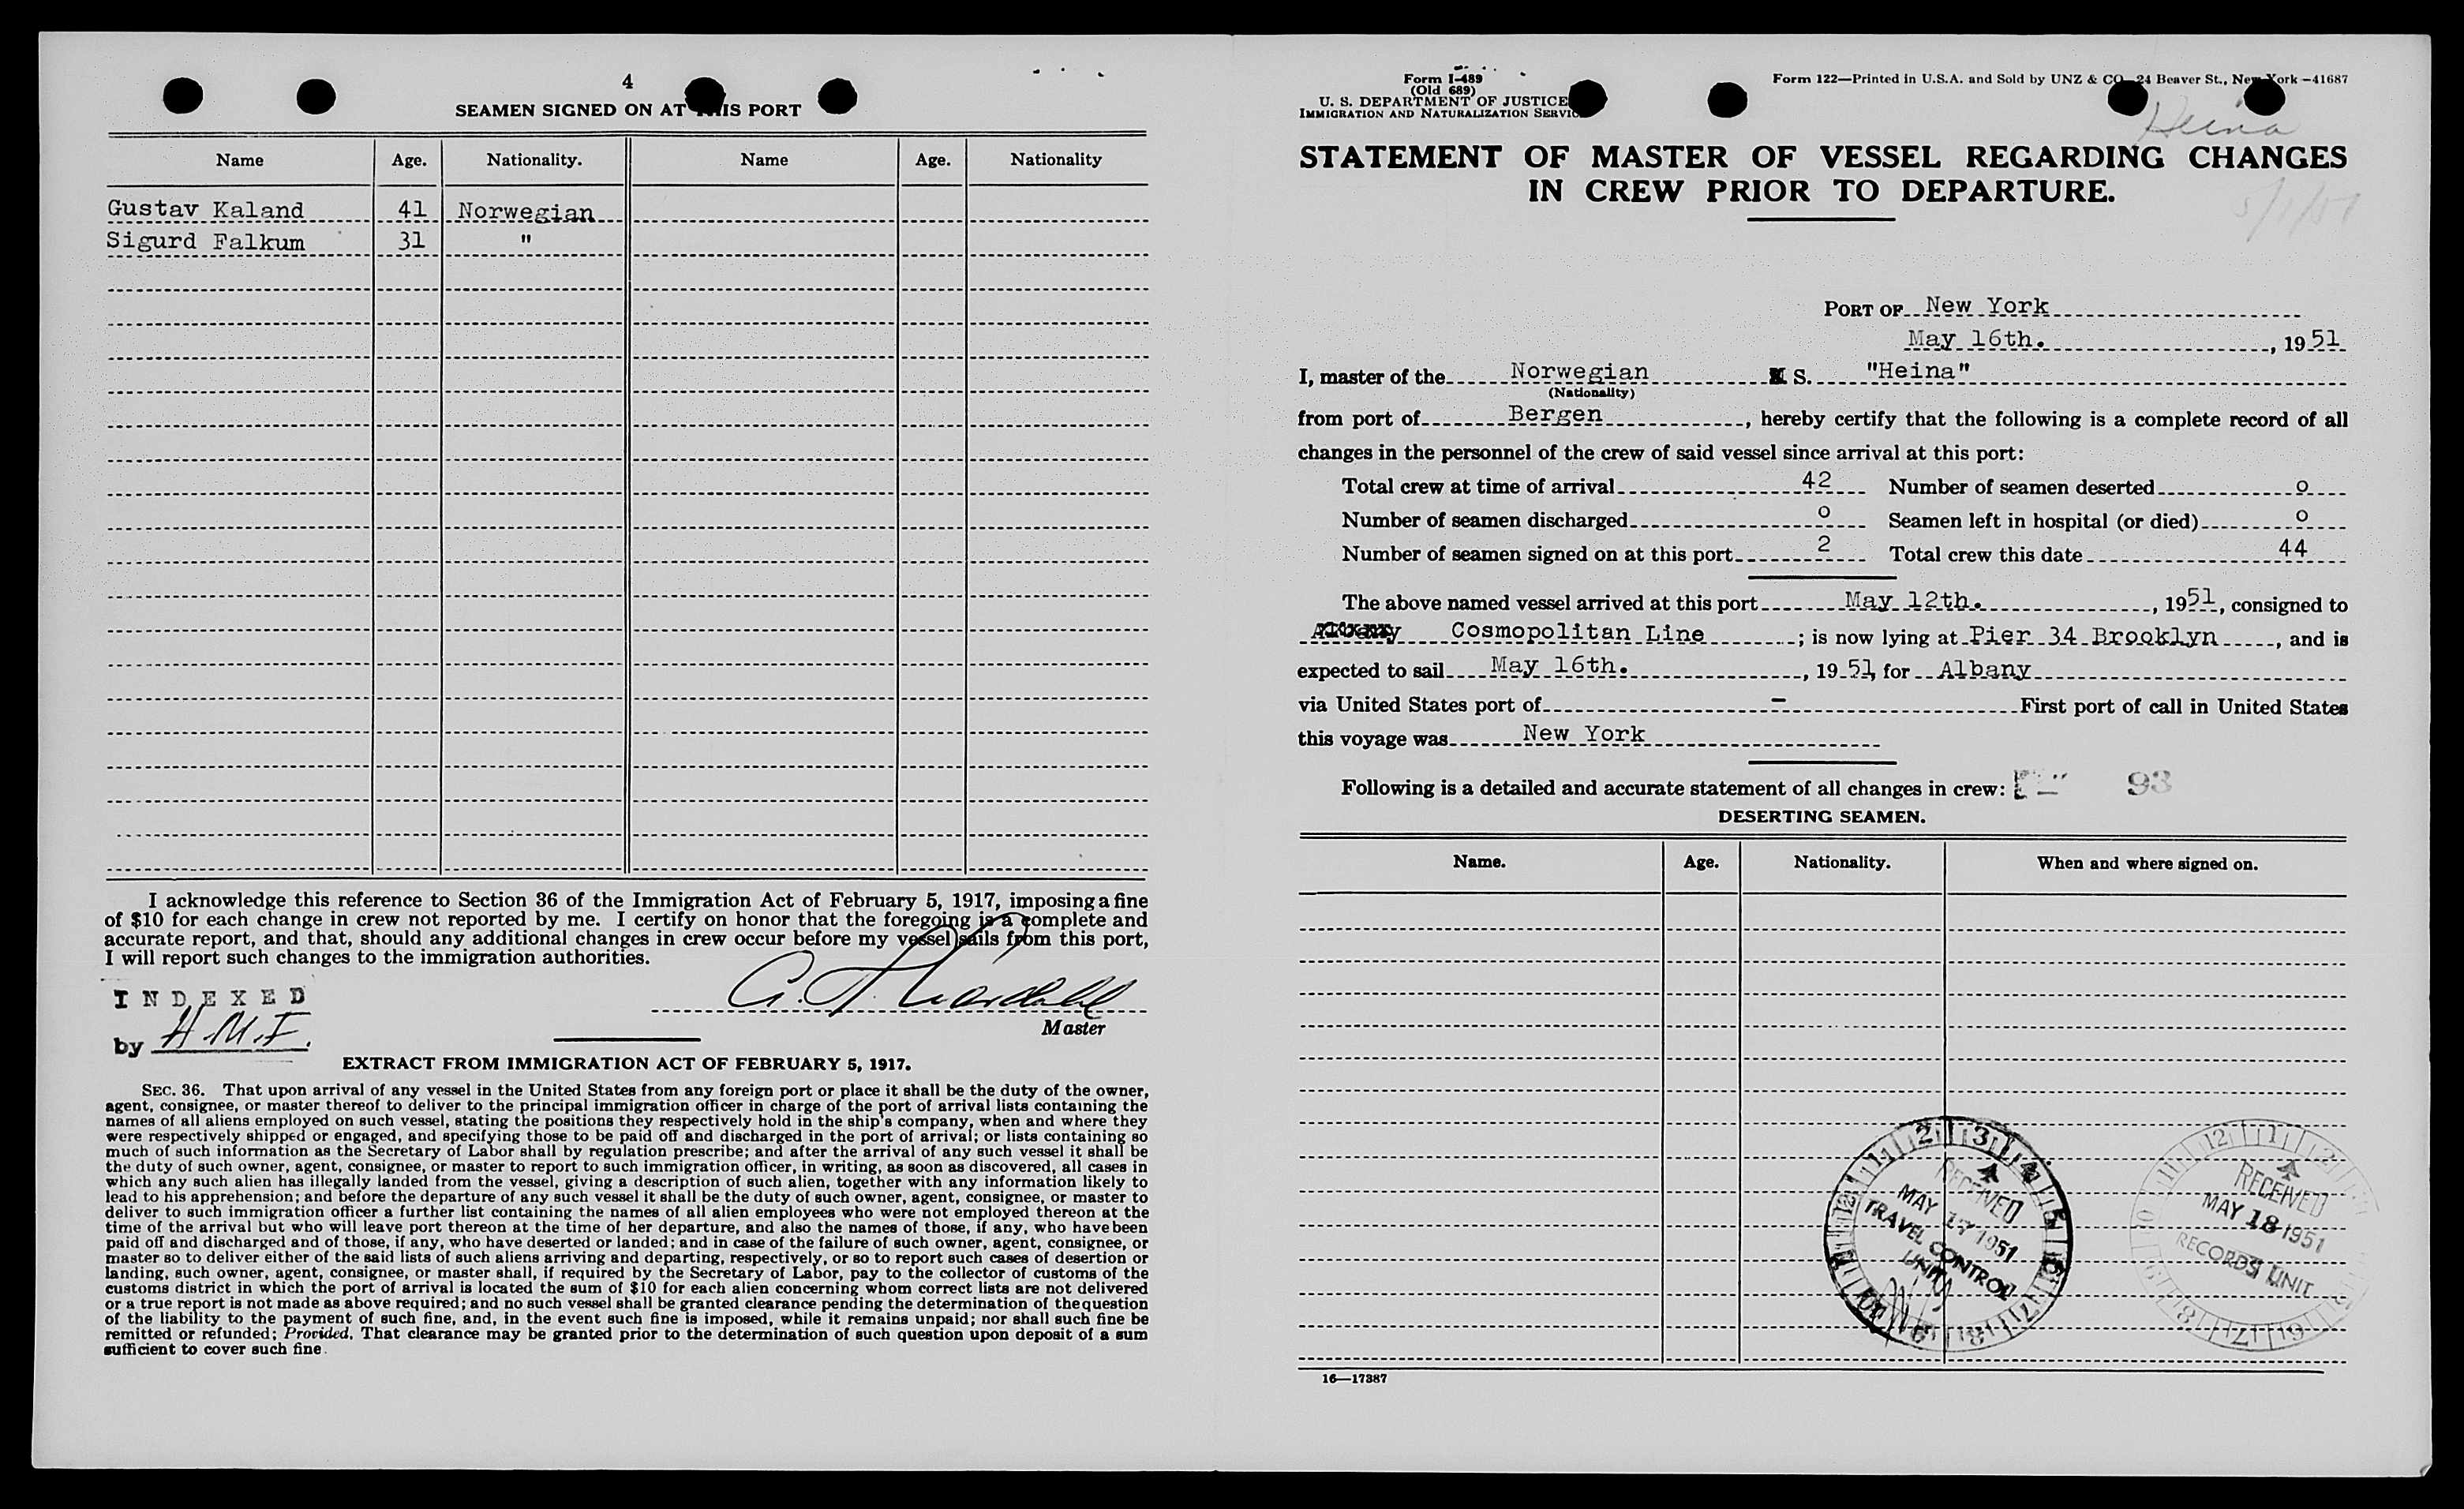 4
SEAMEN SIGNED ON AT THIS PORT
Name Age. Nationality. Name Age. Nationality
Gustav Kaland 41 Norwegian
Sigurd Falkum 31 "
I acknowledge this reference to Section 36 of the Immigration Act of February 5, 1917, imposing a fine
of $10 for each change in crew not reported by me. I certify on honor that the foregoing is a complete and
accurate report, and that, should any additional changes in crew occur before my vessel sails from this port,
I will report such changes to the immigration authorities.
INDEXED
by H.M.I.
Master
EXTRACT FROM IMMIGRATION ACT OF FEBRUARY 5, 1917.
SEC. 36. That upon arrival of any vessel in the United States from any foreign port or place it shall be the duty of the owner,
agent, consignee, or master thereof to deliver to the principal immigration officer in charge of the port of arrival lists containing the
names of all aliens employed on such vessel, stating the positions they respectively hold in the ship's company, when and where they
were respectively shipped or engaged, and specifying those to be paid off and discharged in the port of arrival; or lists containing so
much of such information as the Secretary of Labor shall by regulation prescribe; and after the arrival of any such vessel it shall be
the duty of such owner, agent, consignee, or master to report to such immigration officer, in writing, as soon as discovered, all cases in
which any such alien has illegally landed from the vessel, giving a description of such alien, together with any information likely to
lead to his apprehension; and before the departure of any such vessel it shall be the duty of such owner, agent, consignee, or master to
deliver to such immigration officer a further list containing the names of all alien employees who were not employed thereon at the
time of the arrival but who will leave port thereon at the time of her departure, and also the names of those, if any, who have been
paid off and discharged and of those, if any, who have deserted or landed; and in case of the failure of such owner, agent, consignee, or
master so to deliver either of the said lists of such aliens arriving and departing, respectively, or so to report such cases of desertion or
landing, such owner, agent, consignee, or master shall, if required by the Secretary of Labor, pay to the collector of customs of the
customs district in which the port of arrival is located the sum of $10 for each alien concerning whom correct lists are not delivered
or a true report is not made as above required; and no such vessel shall be granted clearance pending the determination of the question
of the liability to the payment of such fine, and, in the event such fine is imposed, while it remains unpaid; nor shall such fine be
remitted or refunded; Provided, That clearance may be granted prior to the determination of such question upon deposit of a sum
sufficient to cover such fine.
Form I-489
(Old 689)
U. S. DEPARTMENT OF JUSTICE
IMMIGRATION AND NATURALIZATION SERVICE
Form 122—Printed in U.S.A. and Sold by UNZ & CO. 24 Beaver St., New York—41687
Heina
STATEMENT OF MASTER OF VESSEL REGARDING CHANGES
IN CREW PRIOR TO DEPARTURE.
PORT OF New York
May 16th., 1951
I, master of the Norwegian S. "Heina"
(Nationality)
from port of Bergen, hereby certify that the following is a complete record of all
changes in the personnel of the crew of said vessel since arrival at this port:
Total crew at time of arrival 42 Number of seamen deserted o
Number of seamen discharged o Seamen left in hospital (or died) o
Number of seamen signed on at this port 2 Total crew this date 44
The above named vessel arrived at this port May 12th., 1951, consigned to
Cosmopolitan Line; is now lying at Pier 34 Brooklyn, and is
expected to sail May 16th., 1951, for Albany
via United States port of - First port of call in United States
this voyage was New York
Following is a detailed and accurate statement of all changes in crew: 93
DESERTING SEAMEN.
Name. Age. Nationality. When and where signed on.
RECEIVED
MAY 17 1951
TRAVEL CONTROL
UNIT
RECEIVED
MAY 18 1951
RECORDS UNIT
16—17387